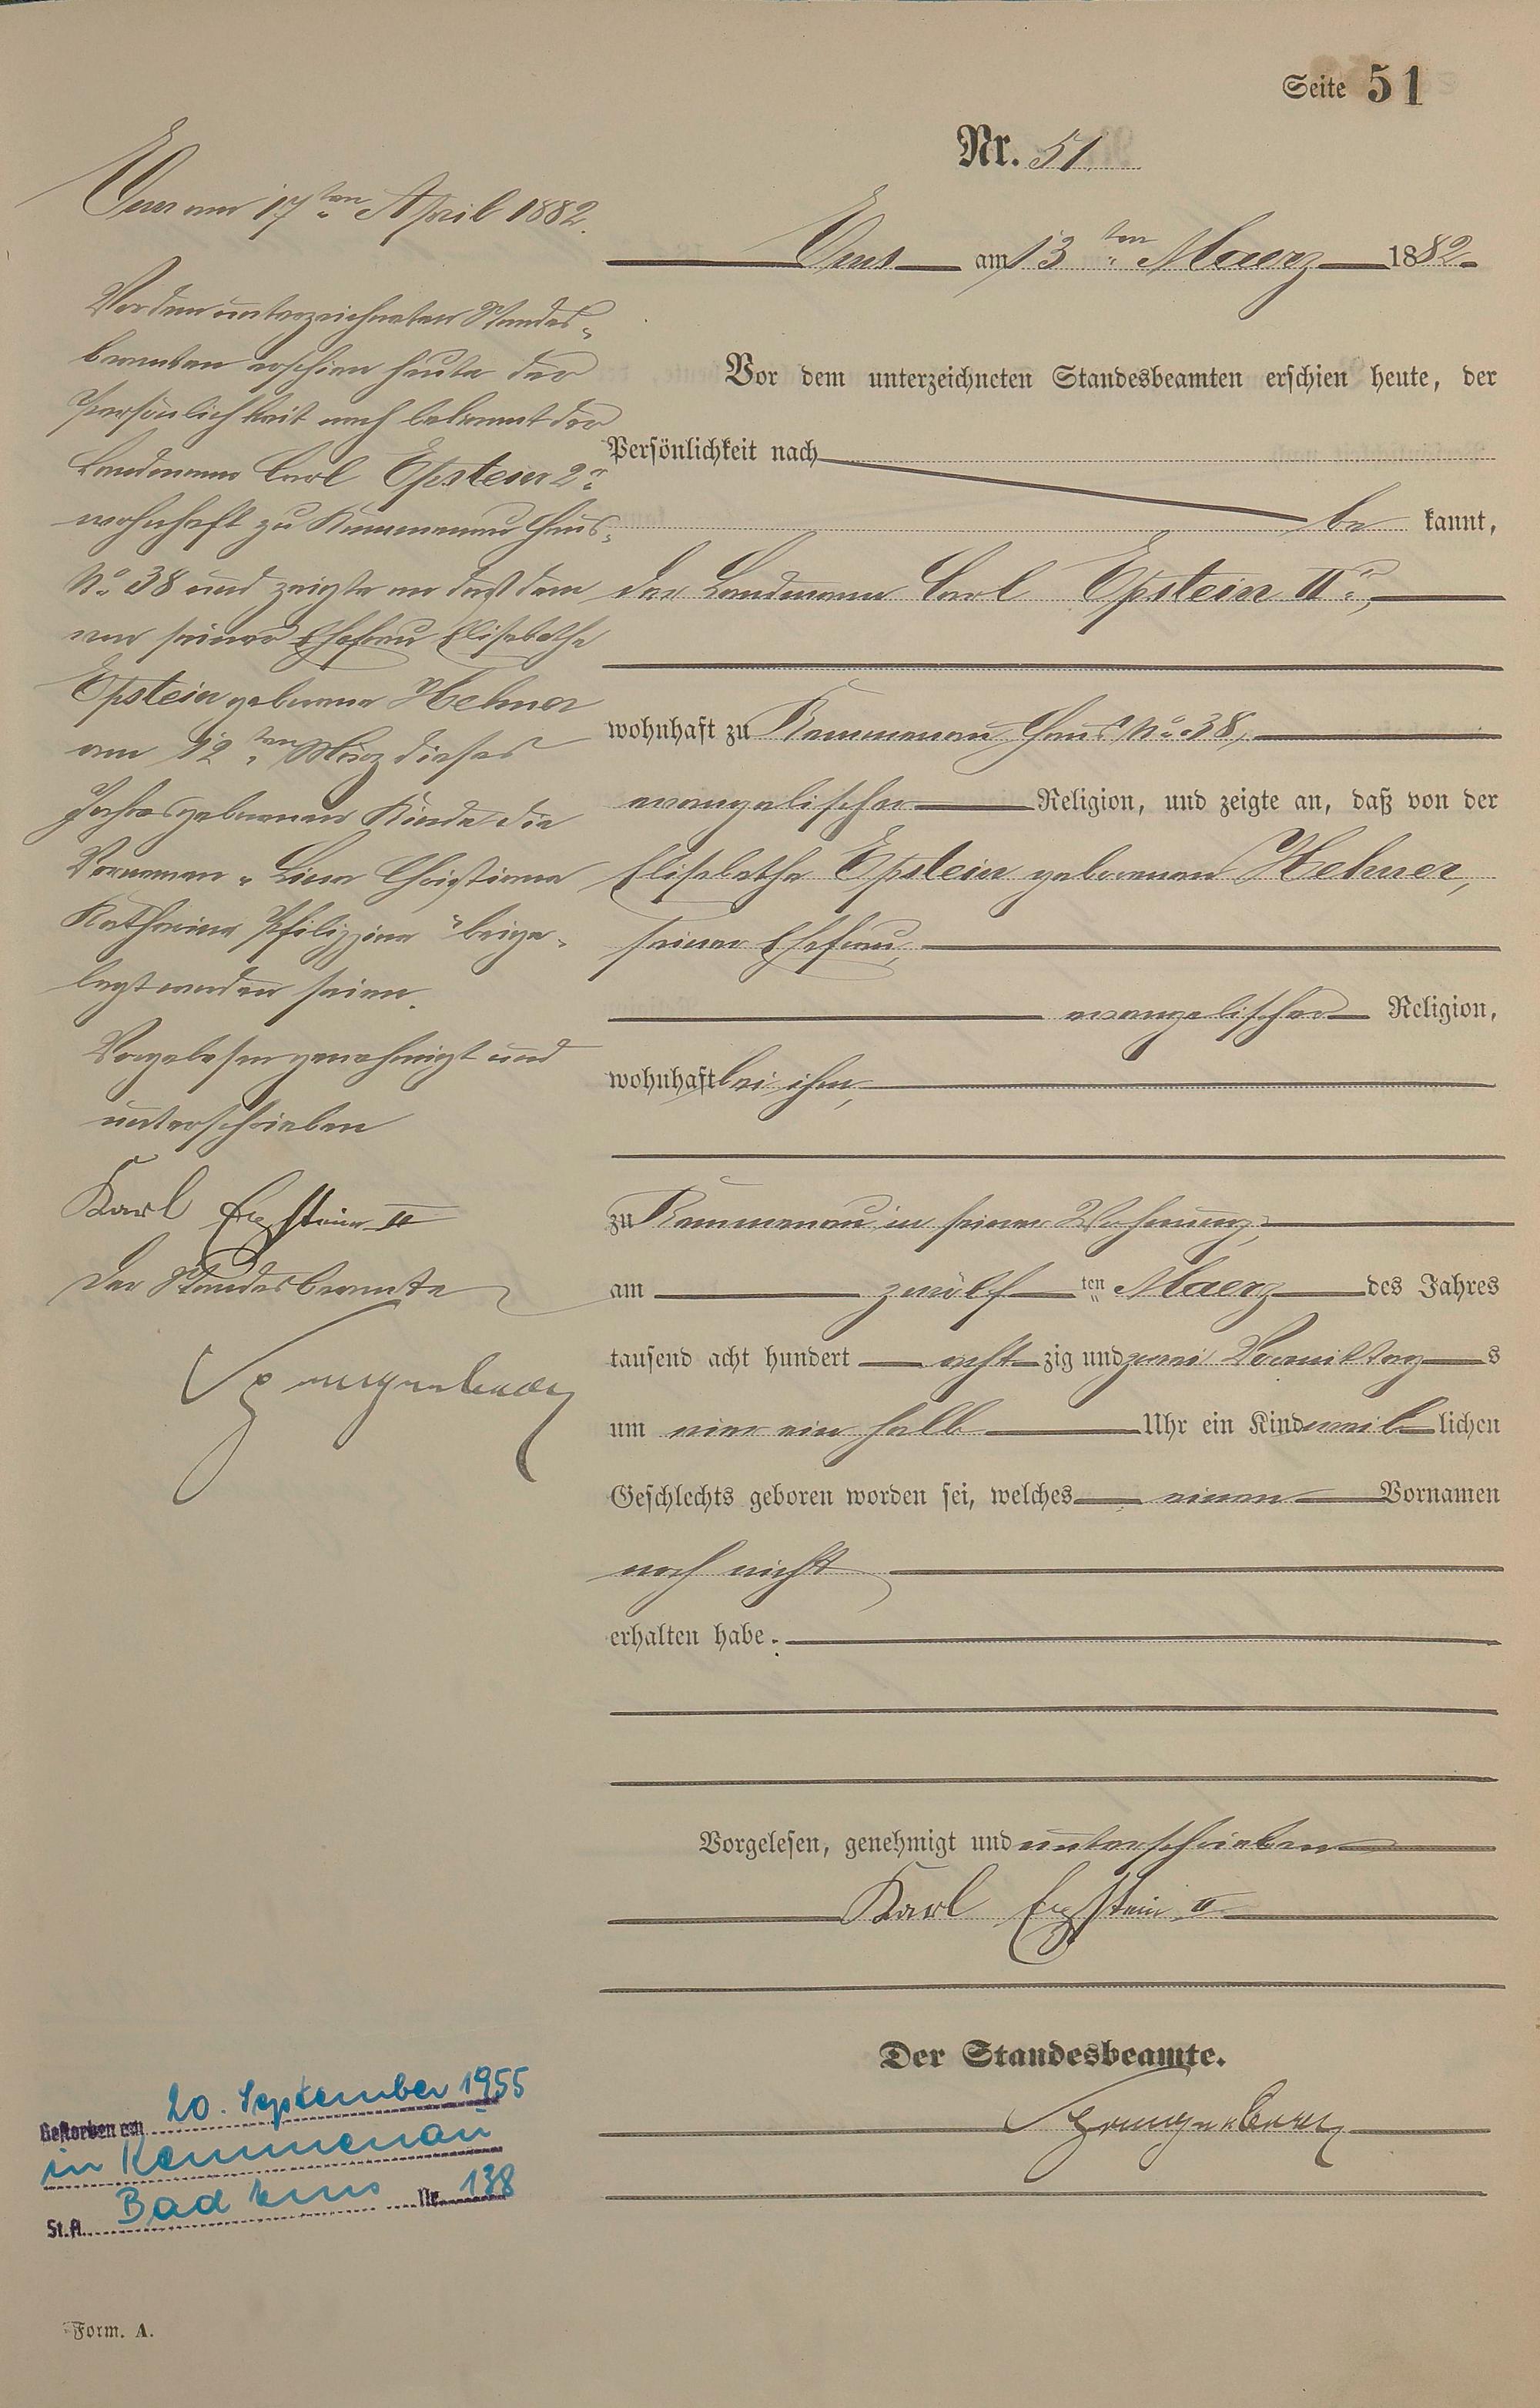 Seite 51
Nr. 51.
Ems am 17ten April 1882.
Vor dem unterzeichneten Standes-
beamten erschien heute der
Persönlichkeit nach bekannt der
Landmann Carl Epstein 2r
wohnhaft zu Kemmenau Haus-
No 38 und zeigte an daß dem
von seiner Ehefrau Elisabethe
Epstein geborene Hehner
am 12ten März dieses
Jahres geborenen Kinde die
Vornamen "Lina Christiane
Katharine Philippine" beige-
legt worden seien.
Vorgelesen genehmigt und
unterschrieben
Karl Epstein II
Der Standesbeamte
Ems am 13ten Maerz 1882
Vor dem unterzeichneten Standesbeamten erschien heute, der
Persönlichkeit nach
be kannt,
der Landmann Carl Epstein IIr,
wohnhaft zu Kemmenau, Haus No 38,
evangelischer Religion, und zeigte an, daß von der
Elisabethe Epstein geborenen Hehner,
seiner Ehefrau,
evangelischer Religion,
wohnhaft bei ihm,
zu Kemmenau in seiner Wohnung,
am zwölf ten Maerz des Jahres
tausend acht hundert acht zig und zwei Vormittag s
um vier ein halb Uhr ein Kind weib lichen
Geschlechts geboren worden sei, welches einen Vornamen
noch nicht
erhalten habe.
Vorgelesen, genehmigt und unterschrieben
Karl Epstein II
Der Standesbeamte.
Gestorben am 20. September 1955
in Kemmenau
St.A. Bad Ems Nr. 138
Form. A.